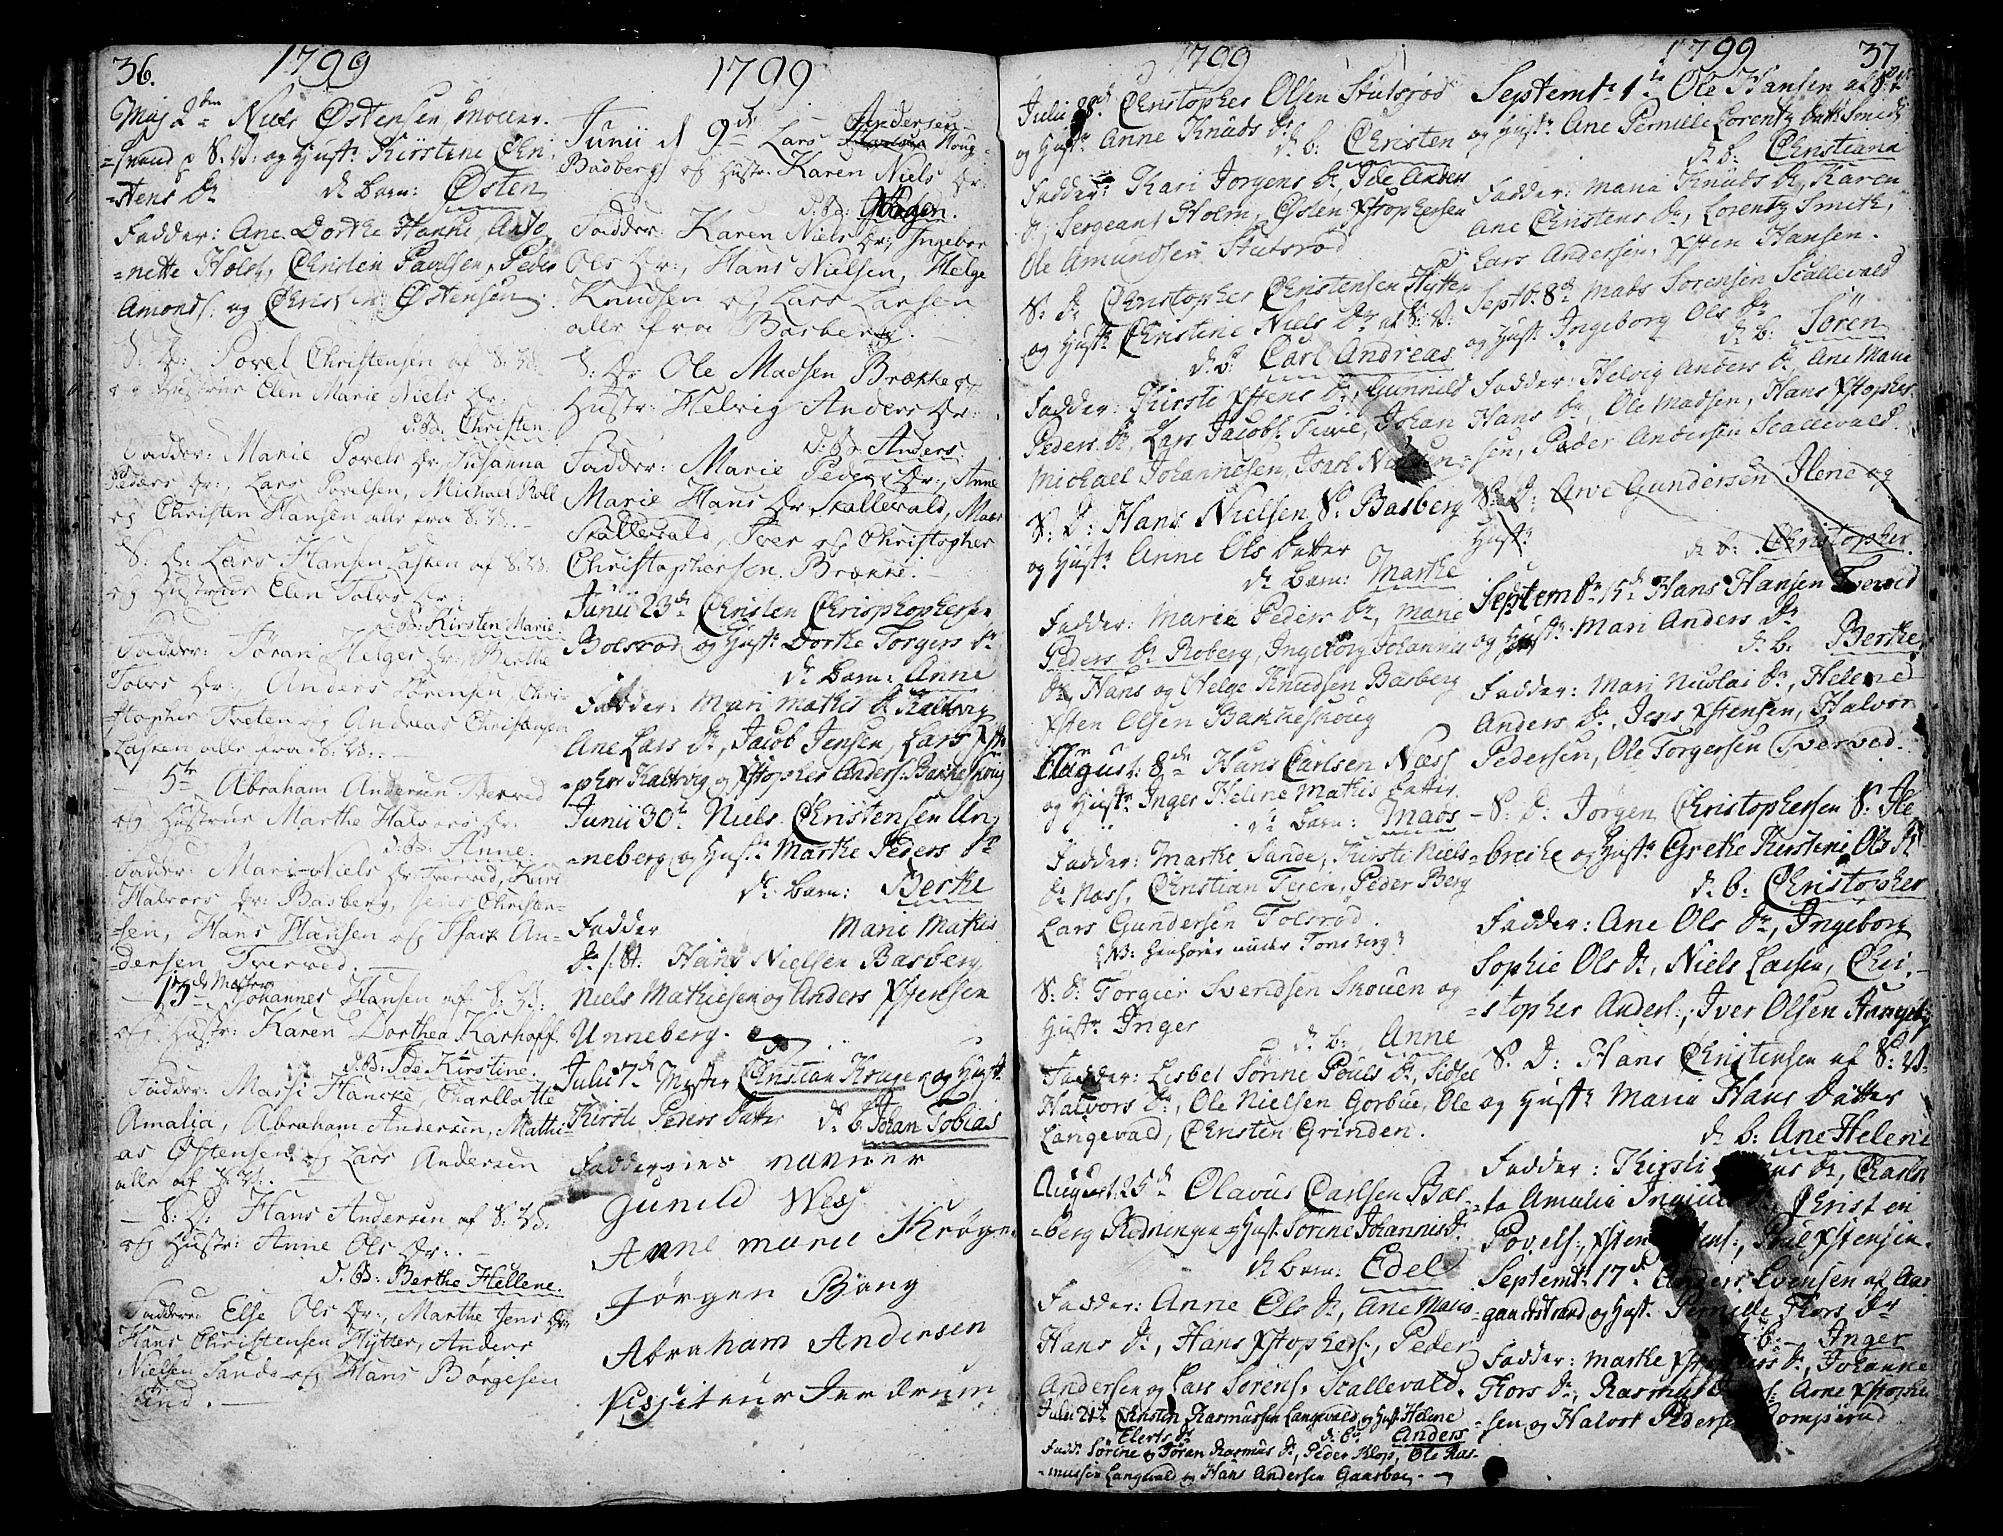 36.
1799
Maj 2den Niels Østensen
svend S. V. og Hust. Kirstine Chri
stens Dr d. Barn: Østen
Fadder: Ane Dorthe Hanke, Anto
nette Holst, Christen Paulsen, Peder
Amonds: og Christen Østensen
S: D: Povel Christensen af S: V:
og Hustrue Elen Marie Niels Dr:
d: B: Christen
Fadder: Marie Povels Dr: Susanna
Peders Dr:, Lars Povelsen, Michael Roll
og Christen Hansen alle fra S: V:
S: D: Lars Hansen Lasken af S: V:
og Hustrue Elen Tolvs Dr:
d: B: Kirsten Marie
Fadder: Jøran Helges Dr: Berthe
Tolvs Dr: Anders Sørensen Chri-
stopher Treten og Andreas Christensen
Lasken alle fra S: V:
5te Abraham Andersen Tverved
og Hustrue Marthe Halvors Dr:
d: B: Anne
Fadder: Mari Niels Dr: Tverved, Kari
Halvors Dr: Basberg, Jens Christen-
sen, Hans Hansen og Isach An-
dersen Tverved.
13de Mester Johannes Hansen af S: V:
og Hustr: Karen Dorthea Karhoff
d: B: Ide Kirstine.
Fadder: Marsi Hancke, Charllotte
Amalia, Abraham Andersen, Mathi-
as Østensen og Lars Andersen
alle af S: V:.
S: D: Hans Andersen af S: V:
og Hustr: Anne Ols Dr:
d: B: Berthe Hellene.
Faddere: Else Ols Dr:, Marthe Jens Dr:
Hans Christensen Hytter, Anders
Nielsen Sande og Hans Børgesen
Lind.
1799
Junii d 9de Lars Andersen Houg
Basberg og Hustr: Karen Niels Dr:
d: B: Jørgen.
Fadder: Karen Niels Dr: Ingebor
Ols Dr:, Hans Nielsen, Helge
Knudsen og Lars Larsen
alle fra Basberg.
S: D: Ole Madsen Brække og
Hustr: Helvig Anders Dr:
d: B: Anders
Fadder: Marie Peders Dr:, Anne
Marie Hans Dr Skallevald, Mads
Skallevald, Iver og Christopher
Christophersen Brække.
Junii 23de Christen Christophersen
Bolsrød og Hust: Dorthe Torgers Dr
d. Barn: Anne
Fadder: Mari Mathis Dr Kaltvig
Ane Lars Dr, Jacob Jensen, Lars Xsto
phers Kaltvig og Xstopher Anders: Bakkeskoug
Junii 30te Niels Christensen Un-
neberg og Hust: Marthe Peders Dr
d. Barn: Berthe
Fadder Marie Mathis
Dr S. V. Hans Nielsen Basberg
Niels Mathiesen og Anders Xstensen
Unneberg.
Julii 7de Mester Christian Krüger og Hust:
Kirsti Peders Datter d. b. Johan Tobias
Faddernes navner
Gunild Wess
Anne marie Krøger
Jørgen Bang
Abraham Andersen
Visiteur Jerdrum
1799
Julii 28de Christopher Olsen Stutsrød
og Hust: Anne Knuds Dr
d. b: Christen
Fadder: Kari Jørgens Dr, Ide Anders
Dr, Sergeant Holm, Østen Xstophersen
Ole Amundsen Stutsrød
S: D: Christopher Christensen Hytter
og Hust: Christine Niels Dr af S: V:
d. b: Carl Andreas
Fadder: Kirsti Xstens Dr, Gunnild
Peders Dr, Lars Jacobs: Tuve, Johan
Michael Johannesen, Isach
S: D: Hans Nielsen S: Basberg
og Hust: Anne Ols Datter
d. Barn: Marthe
Fadder: Marie Peders Dr, Marie
Peders Dr Roberg, Ingeborg Johannis
Dr, Hans og Helge Knudsen Basberg
Xsten Olsen Bakkeskoug
August: 8de Hans Carlsen Næss
og Hust: Inger Helene Mathis Datter
d. Barn: Mads
Fadder: Marthe Sande, Kirsti Niels
Dr Næss, Christian Teien, Peder Berg
Lars Gundersen Tolsrød.
NB: henhører under Tønsberg
S: D: Torgier Svendsen Skouen og
Hust: Inger
d. b: Anne
Fadder: Lisbet Sørine Pouls Dr, Sidsel
Halvors Dr, Ole Nielsen Gorbue, Ole
Langevald, Christen Grinden.
August: 25de Olavus Carlsen Bas-
berg Rødningen og Hust: Sørine Johannis Dr
d. Barn: Edel
Fadder: Anne Ols Dr, Ane Maria
Hans Dr, Hans Xstophers:, Peder
Andersen og Lars Sørens: Scallevald.
Julii 21de Christen Rasmussen Langevald og Hust: Helene
Elerts Dr d. b: Anders
Fadd: Sørine og Jøran Rasmus Dr, Peder Klop, Ole Ras-
mussen Langevald og Hans Andersen Gaasboe
1799 37
Septembr 1te Ole Hansen af S: V:
og Hust: Ane Pernille Lorentz Datt: Smidt
d. b: Christiana
Fadder: Maria Knuds Dr, Karen
Ane Christens Dr, Lorentz Smith,
Lars Andersen, Xsten Hansen.
Septb: 8de Mads Sørensen Scallevald
og Hust: Ingeborg Ols Dr
d. b: Søren
Fadder: Helvig Anders Dr, Ane Marie
Hans Dr, Ole Madsen, Hans Xstopher
sen, Peder Andersen Scallevald.
S: D: Arve Gundersen Ilene og
Hust:
d. b: Christopher
Septembr 15de Hans Hansen Tverved
og Hust: Mari Anders Dr
d. b. Berthe
Fadder: Mari Nicolai Dr, Helene
Anders Dr, Jens Xstensen, Halvor
Pedersen, Ole Torgersen Tverved.
S: D: Jørgen Christophersen S: Ile-
breike og Hust: Grethe Kirstine Ols Dr
d. b: Christopher
Fadder: Ane Ols Dr, Ingeborg
Sophie Ols Dr, Niels Larsen, Chri-
stopher Anders:, Iver Olsen
S: D: Hans Christensen af S: V:
og Hust: Maria Hans Datter
d. b: Ane Helene
Fadder: Kirsti Dr, Charlot
ta Amalia, Christen
Povels:, Xsten, Poul Xstensen.
Septembr 17de Anders Evensen af Aas-
gaardstrand og Hust: Pernille Thors Dr
b: Inger
Fadder: Marthe Dr, Johanne
Thors Dr, Rasmus, Arne Xstopher
sen og Halvor Pedersen Romperud